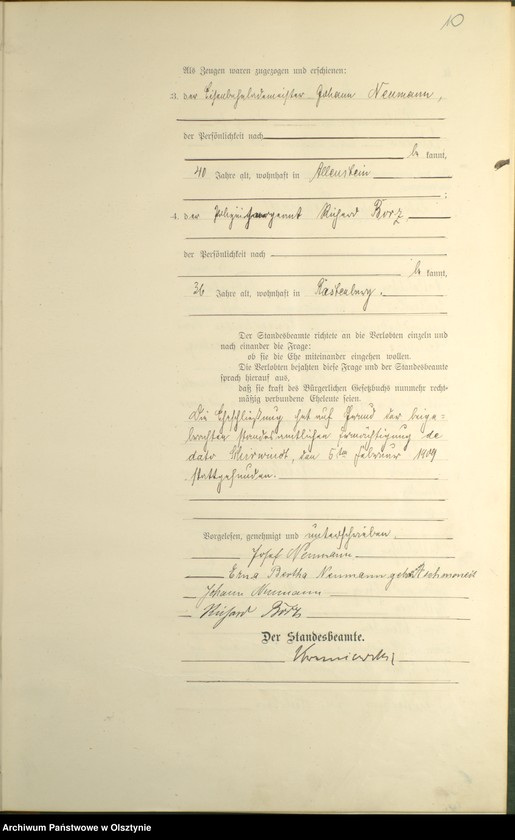 10
Als Zeugen waren zugezogen und erschienen:
3. der Eisenbahnlademeister Johann Neumann,
der Persönlichkeit nach
be kannt,
40 Jahre alt, wohnhaft in Allenstein
;
4. der Polizeisergeant Richard Borz
der Persönlichkeit nach
be kannt,
36 Jahre alt, wohnhaft in Rastenburg.
Der Standesbeamte richtete an die Verlobten einzeln und
nach einander die Frage:
ob sie die Ehe miteinander eingehen wollen.
Die Verlobten bejahten diese Frage und der Standesbeamte
sprach hierauf aus,
daß sie kraft des Bürgerlichen Gesetzbuchs nunmehr recht-
mäßig verbundene Eheleute seien.
Die Eheschließung hat auf Grund der beige=
brachten standesamtlichen Ermächtigung de
dato Schirwindt, den 5ten Februar 1909
stattgefunden.
Vorgelesen, genehmigt und unterschrieben.
Josef Neumann
Erna Bertha Neumann geb.
Johann Neumann
Richard Borz
Der Standesbeamte.
Archiwum Państwowe w Olsztynie